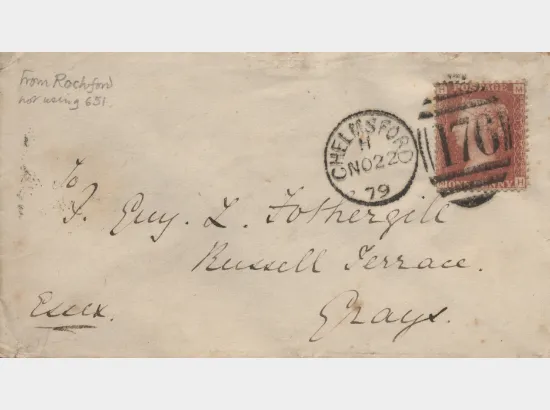 From Rochford
not using 651.
CHELMSFORD
H
NO 22
79
POSTAGE
H M
176
M H
ONE PENNY
To
J. Guy. L. Fothergill
Russell Terrace.
Grays.
Essex.